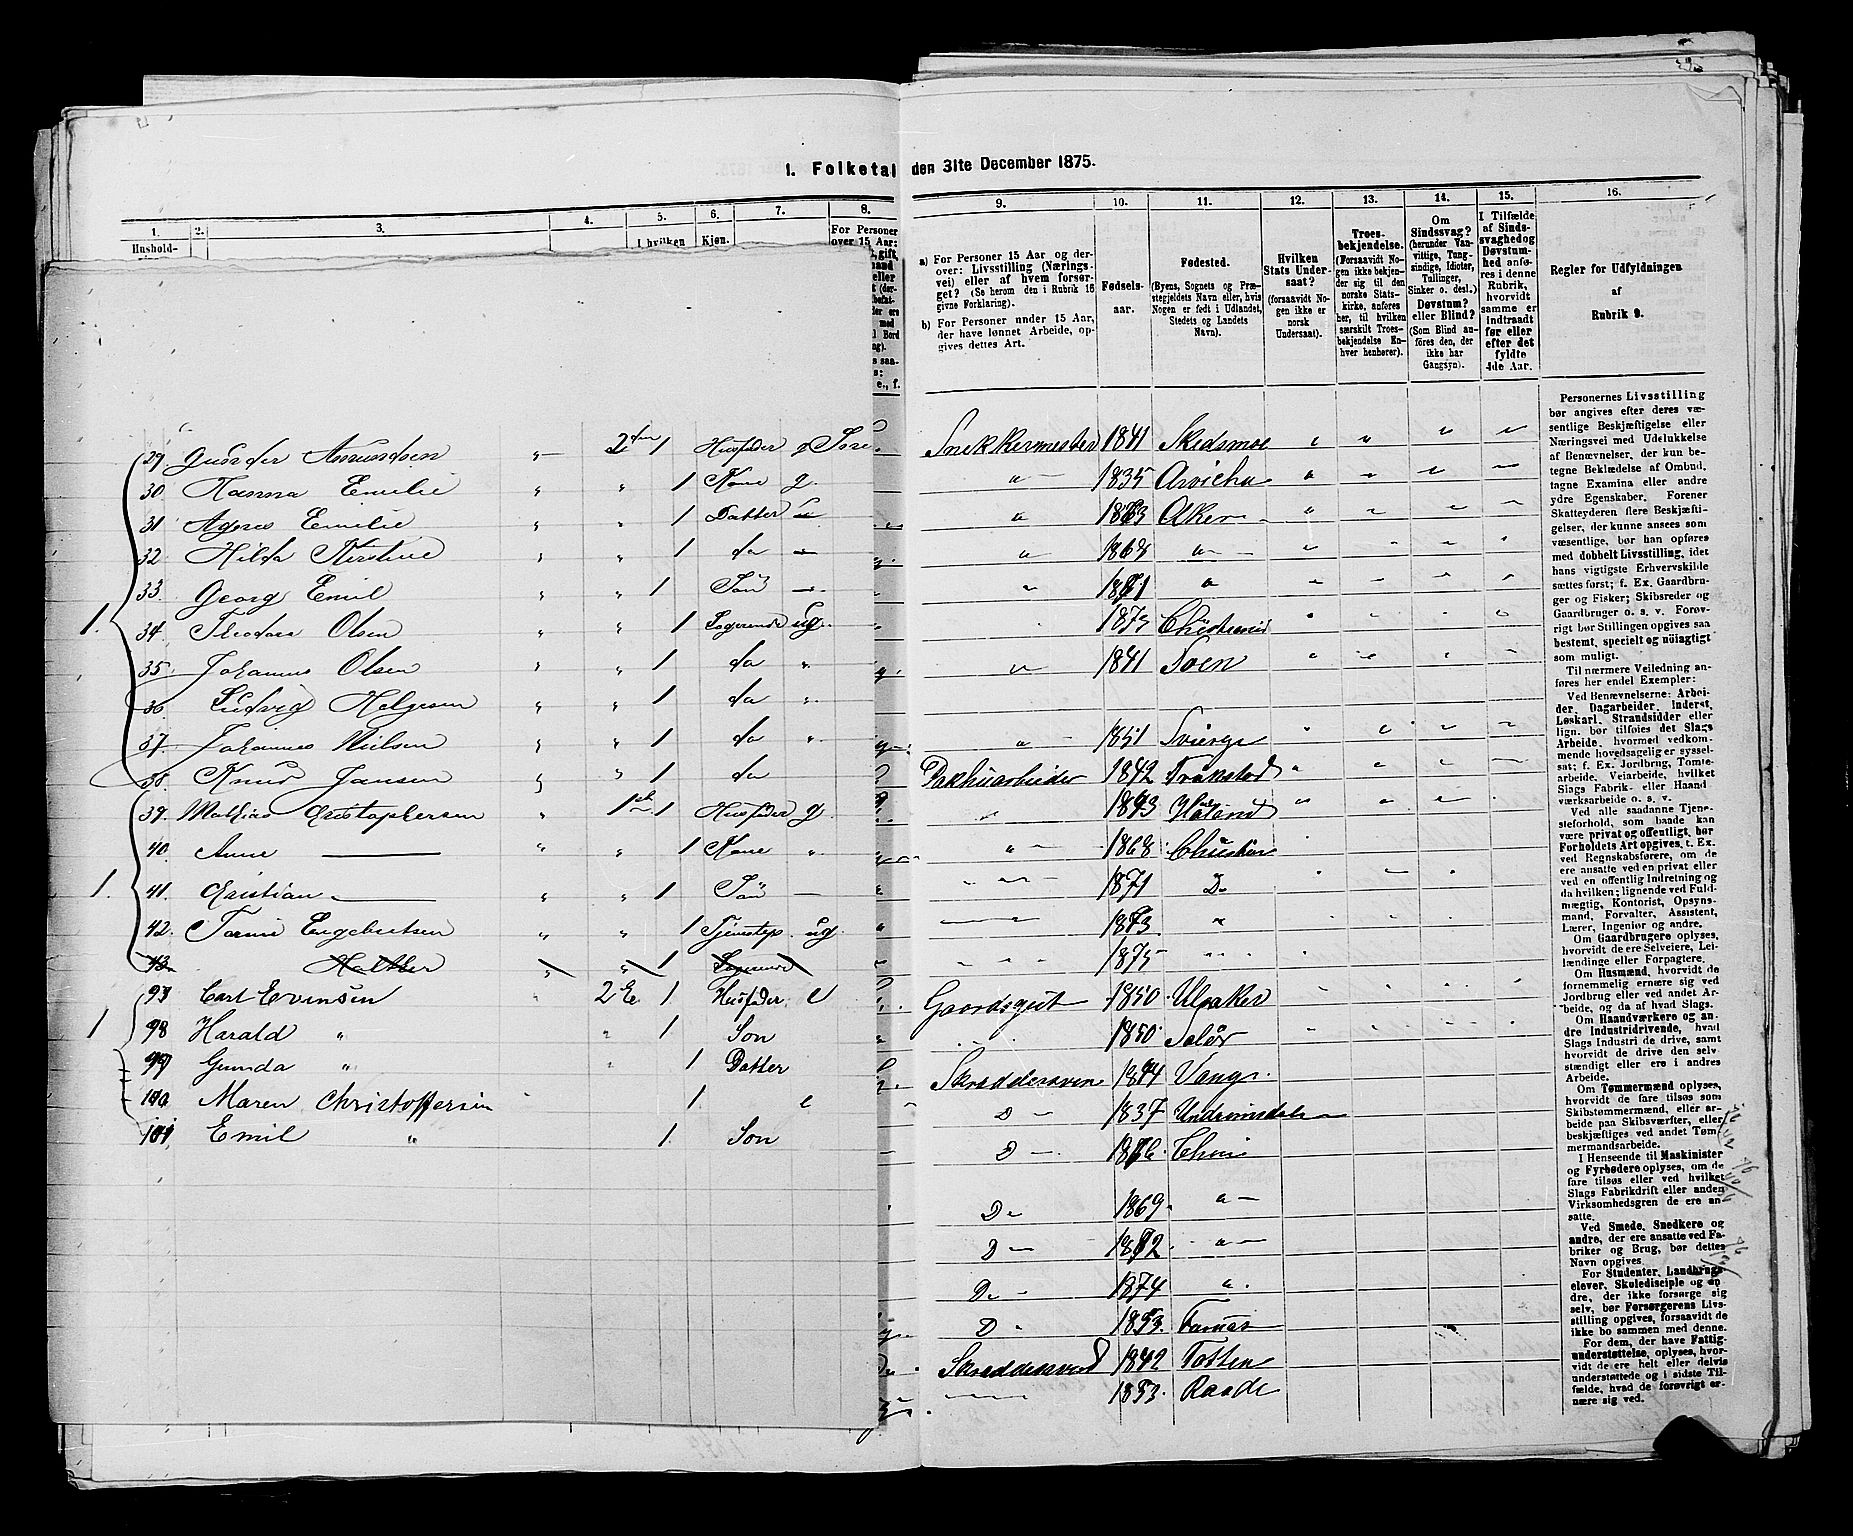 1. Folketal den 31te December 1875.
1. 2. 3. 4. 5. 6. 7. 8. 9. 10. 11. 12. 13. 14. 15. 16.
Hushold-
I hvilken
Kjøn.
For Personer
over 15 Aar:
a) For Personer 15 Aar og der-
over: Livsstilling (Nærings-
vei) eller af hvem forsør-
get? (Se herom den i Rubrik 16
givne Forklaring).
b) For Personer under 15 Aar,
der have lønnet Arbeide, op-
gives dettes Art.
Fødsels-
aar.
Fødested.
(Byens, Sognets og Præ-
stegjeldets Navn eller, hvis
Nogen er født i Udlandet,
Stedets og Landets
Navn).
Hvilken
Stats Under-
saat?
(forsaavidt No-
gen ikke er
norsk
Undersaat).
Troes-
bekjendelse.
(Forsaavidt No-
gen ikke bekjen-
der sig til den
norske Stats-
kirke, anføres
her, til hvilken
særskilt Troes-
bekjendelse En-
hver henhører).
Om
Sindssvag?
(herunder Van-
vittige, Tung-
sindige, Idioter,
Tullinger,
Sinker o. desl.)
Døvstum?
eller Blind?
(Som Blind an-
føres den, der
ikke har
Gangsyn).
I Tilfælde
af Sinds-
svaghed og
Døvstum-
hed anfø-
res i denne
Rubrik,
hvorvidt
samme er
indtraadt
før eller
efter det
fyldte
4de Aar.
Regler for Udfyldningen
af
Rubrik 9.
29. Gunder Amundsen " 2den 1 Husfader g
30. Hanna Emilie " " 1 Kone g.
31 Agnes Emilie " " 1 Datter
32. Hilda Kirstine " " 1 do
33. Georg Emil " " 1 Søn
1. 34. Theodor Olsen " " 1 Logerende ug.
35. Johannes Olsen " " 1 do "
36 Ludvig Helgesen " " 1 do "
37. Johannes Nielsen " " 1 do "
38. Knud Jansen " " 1 do
39. Mathias Cristophersen " 1 Husfader g
40. Anne " " 1 Kone "
1. 41. Cristian " " 1 Søn
42. Engebretsen " " 1 ug
43. 1 Logerende
93 Carl Evensen 2 1 Husfader e
1 98 Harald " " 1 Son
99 Gunda " " 1 Datter
100 Maren Christoffersen 1 e
101 Emil " 1. Son
Snekkermester 1841 Skedsmoe
" 1835 Arvicha
" 1863 Aker
" 1868 "
" 1871 "
1875 Christiania
" 1841 Soen
" 1851 Sverge
Pakhuarbeider 1842 Trøkstad
1843 Høland
" 1868 Christian
" 1871 D
" 1873. "
" 1875
Gaardsgut 1850. Ulsaker
1850. Solør
Skræddersven 1844 Vang.
D 1837 Undrumsdal
D 1866. Chri
D 1869. "
D 1872. "
D 1874 "
D 1853.
Skræddersvend 1842 Totten
1853. Raade
Personernes Livsstilling
bør angives efter deres væ-
sentlige Beskjæftigelse eller
Næringsvei med Udelukkelse
af Benævnelser, der kun be-
tegne Beklædelse af Ombud,
tagne Examina eller andre
ydre Egenskaber. Forener
Skatteyderen flere Beskjæfti-
gelser, der kunne ansees som
væsentlige, bør han opføres
med dobbelt Livsstilling, idet
hans vigtigste Erhvervskilde
sættes først; f. Ex. Gaardbru-
ger og Fisker; Skibsreder og
Gaardbruger o. s. v. Forøv-
rigt bør Stillingen opgives saa
bestemt, specielt og nöiagtigt
som muligt.
Til nærmere Veiledning an-
føres her endel Exempler:
Ved Benævnelserne: Arbei-
der, Dagarbeider, Inderst,
Løskarl, Strandsidder eller
lign. bør tilføies det Slags
Arbeide, hvormed vedkom-
mende hovedsagelig er syssel-
sat; f. Ex. Jordbrug, Tomte-
arbeide, Veiarbeide, hvilket
Slags Fabrik- eller Haand-
værksarbeide o. s. v.
Ved alle saadanne Tjene-
steforhold, som baade kan
være privat og offentligt, bør
Forholdets Art opgives, f. Ex.
ved Regnskabsførere, om de
ere ansatte ved en privat eller
ved en offentlig Indretning og
da hvilken; lignende ved Fuld-
mægtig, Kontorist, Opsyns-
mand, Forvalter, Assistent,
Lærer, Ingeniør og andre.
Om Gaardbrugere oplyses,
hvorvidt de ere Selveiere, Lei-
lændinge eller Forpagtere.
Om Husmænd, hvorvidt de
fornemmelig ernære sig ved
Jordbrug eller ved andet Ar-
beide, og da af hvad Slags.
Om Haandværkere og an-
dre Industridrivende, hvad
Slags Industri de drive, samt
hvorvidt de drive den selv-
stændigt eller ere i andres
Arbeide.
Om Tømmermænd oplyses,
hvorvidt de fare tilsøs som
Skibstømmermænd, eller ar-
beide paa Skibsværfter, eller
beskjæftiges ved andet Tøm-
mermandsarbeide.
I Henseende til Maskinister
og Fyrbødere oplyses, om de
fare tilsøs eller ved hvilket
Slags Fabrikdrift eller anden
Virksomhedsgren de ere an-
satte.
Ved Smede, Snedkere og
andre, der ere ansatte ved Fa-
briker og Brug, bør dettes
Navn opgives.
For Studenter, Landbrugs-
elever, Skoledisciple og an-
dre, der ikke forsørge sig
selv, bør Forsørgerens Livs-
stilling opgives, forsaavidt de
ikke bo sammen med denne.
For dem, der have Fattig-
understøttelse, oplyses, hvor-
vidt de ere helt eller delvis
understøttede og i sidste Til-
fælde, hvad de forøvrigt er-
nære sig ved.